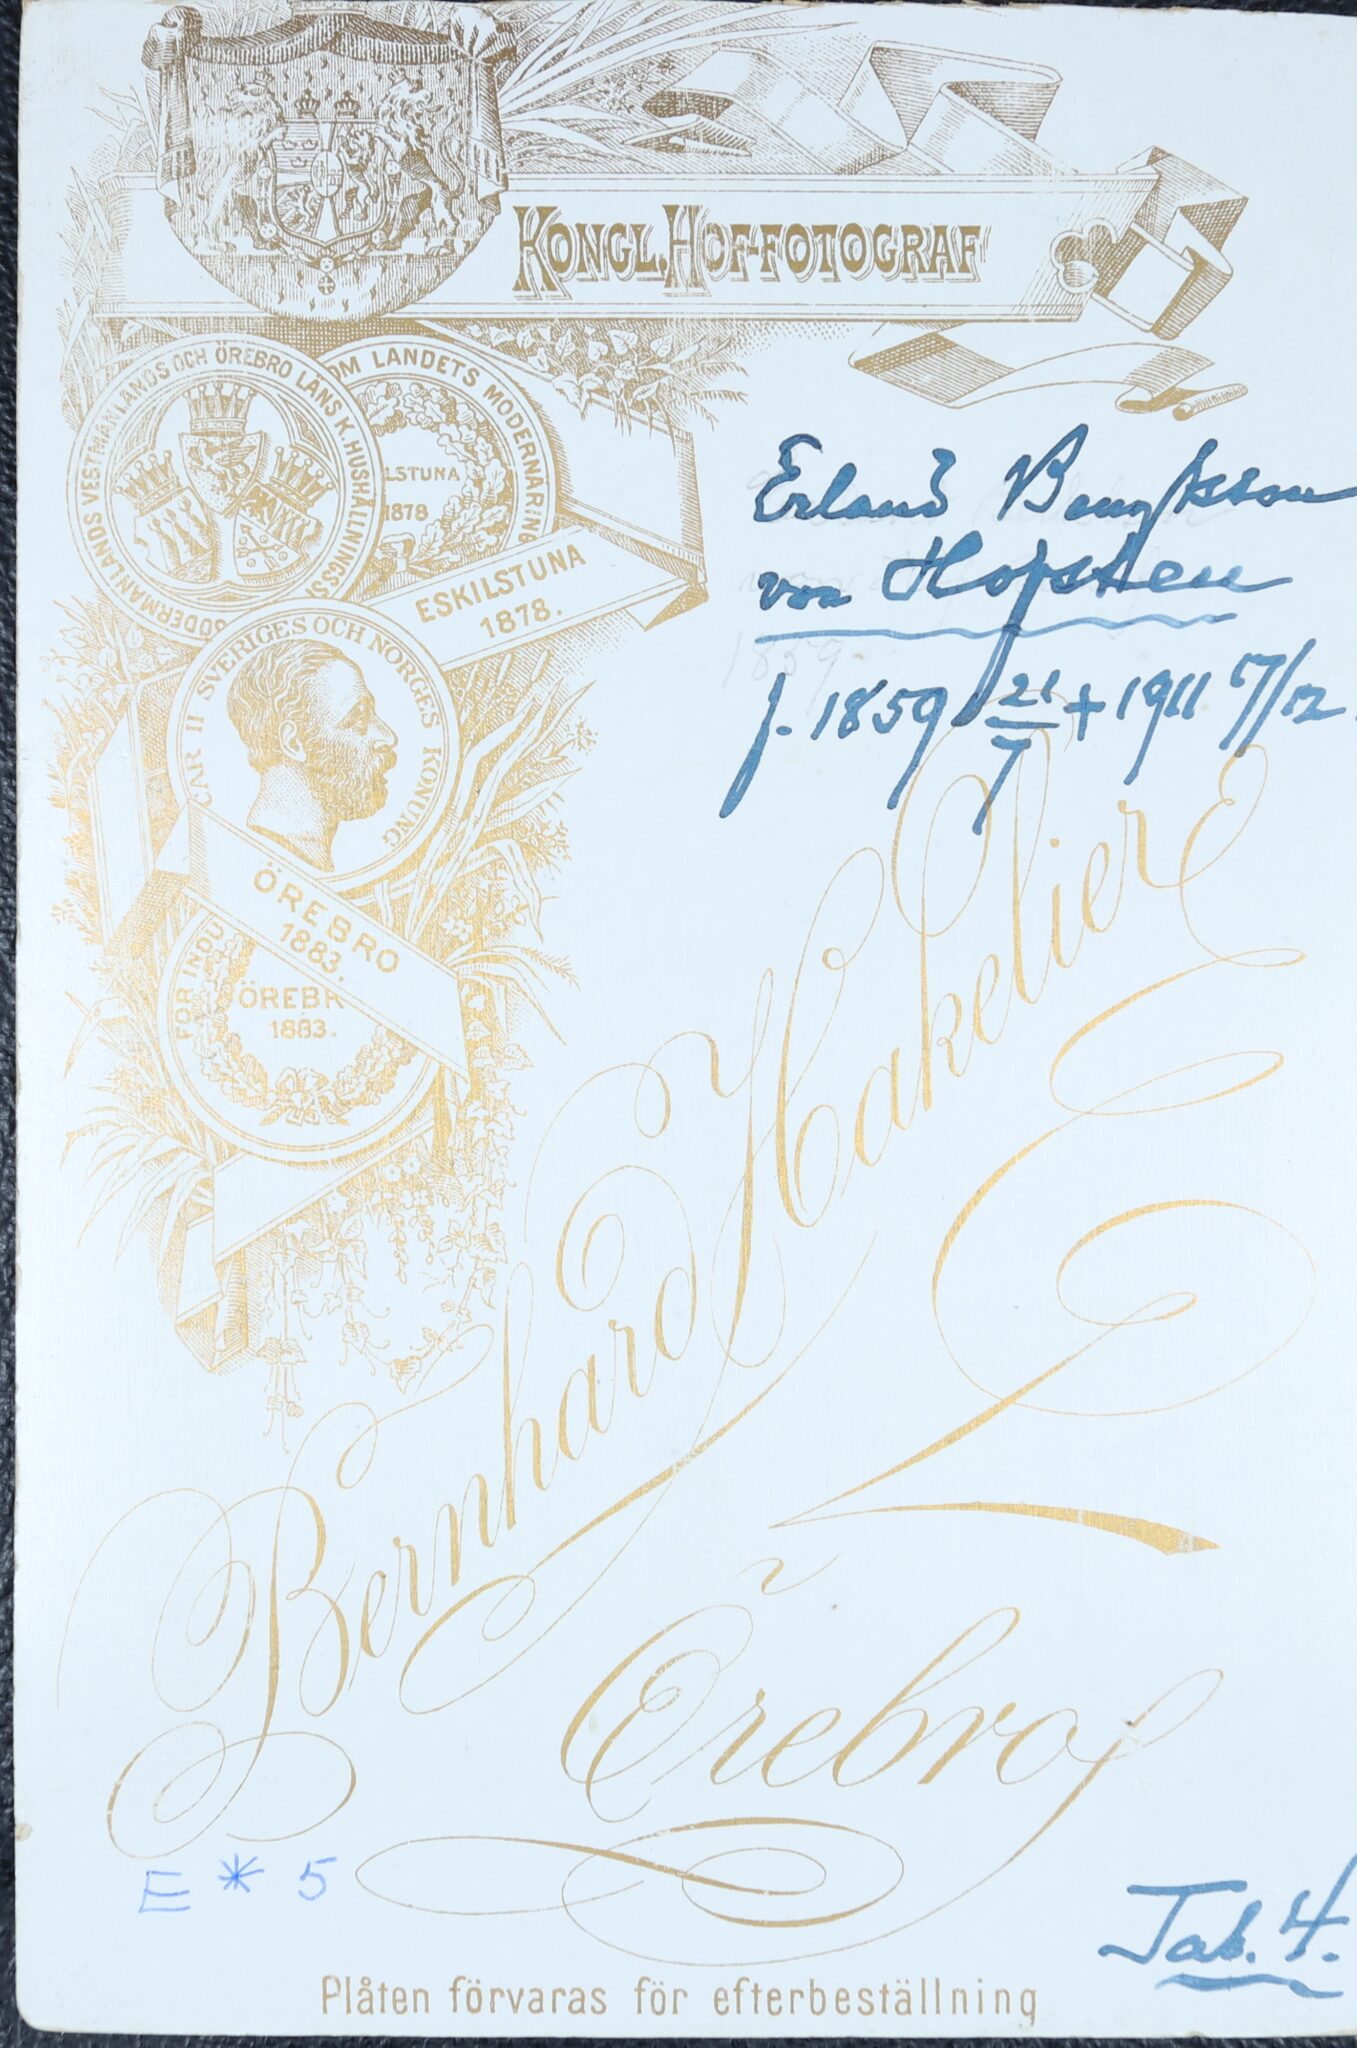 KONGL. HOF-FOTOGRAF
SÖDERMANLANDS VESTMANLANDS OCH ÖREBRO LÄNS K. HUSHÅLLNINGSS
OM LANDETS MODERNÄRING
LSTUNA
1878
ESKILSTUNA
1878.
Erland Bengtsson
von Hofsten
f. 1859 21/7 + 1911 7/12.
1859
CAR II SVERIGES OCH NORGES KONUNG
ÖREBRO
1883.
FÖR INDU
ÖREBR
1883.
Bernhard Hakelier
Örebro
E * 5
Tab. 4.
Plåten förvaras för efterbeställning